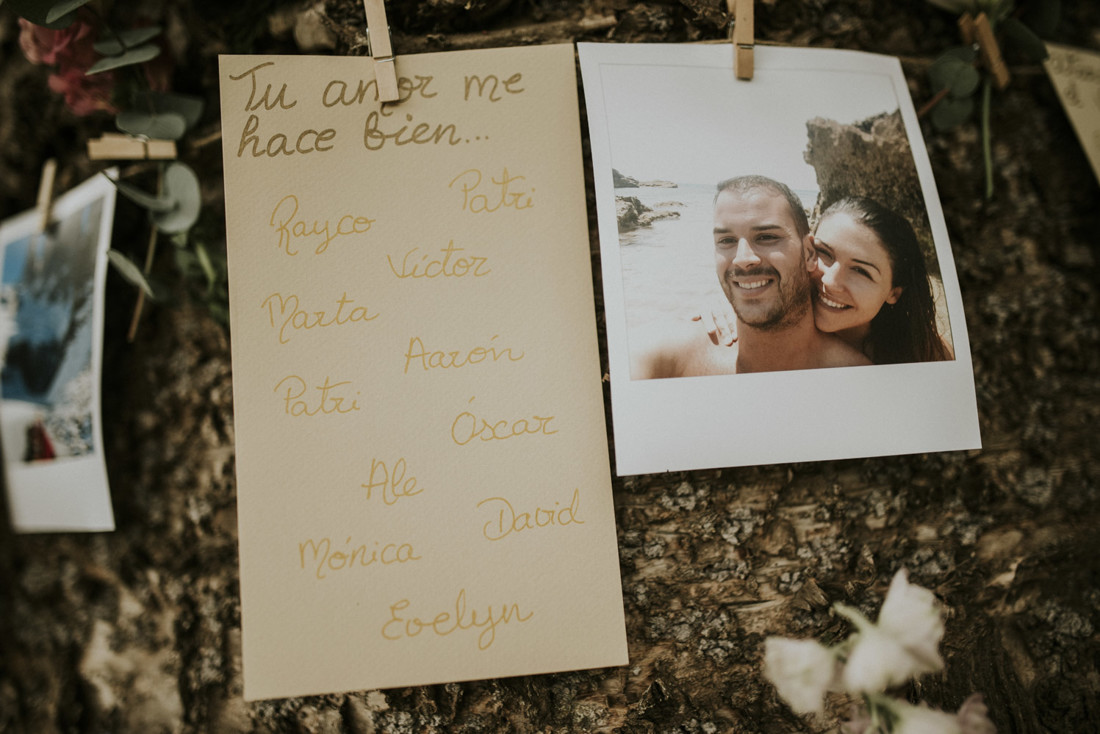 Tu amor me
hace bien...
Patri
Rayco
Víctor
Marta
Aarón
Patri
Óscar
Ale
David
Mónica
Evelyn